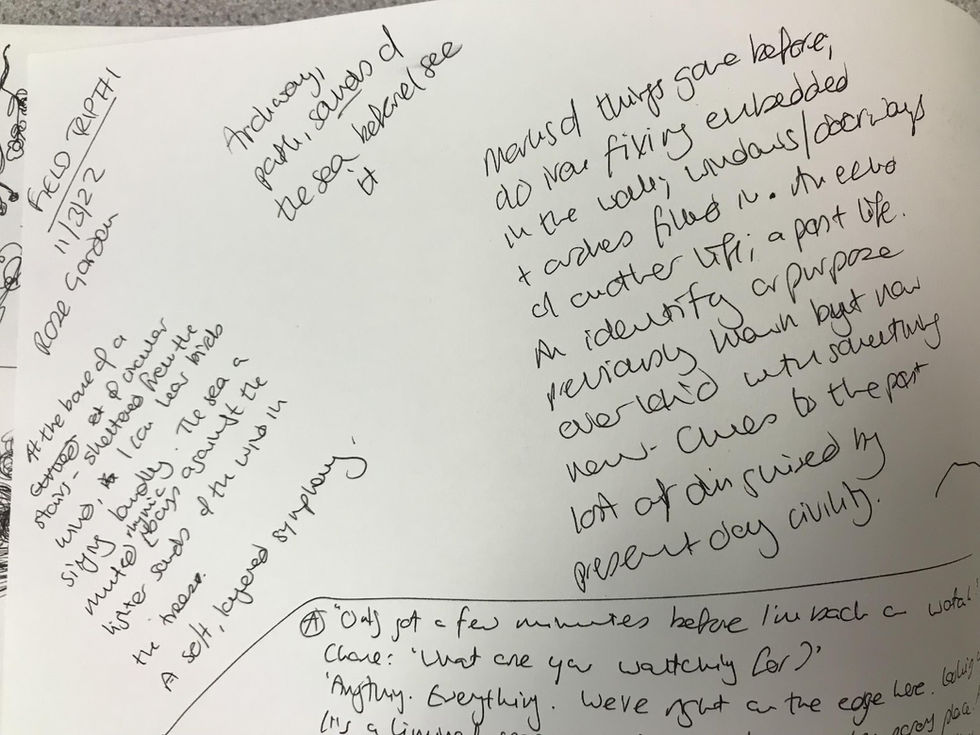 FIELD TRIP TH1
11/3/22
ROSE Garden
At the base of a
set of circular
stairs - sheltered from the
wind, I can hear birds
singing loudly. The sea a
muted rhymic bass against the
lighter sounds of the wind in
the trees.
A soft, layered symphony.
Archway,
path, sounds of
the sea before I see
it
Marks of things gone before,
old iron fixing embedded
in the walls, windows/doorways
+ arches filled in. An echo
of another life; a past life.
An identify or purpose
previously known but now
overlaid with something
new. Clues to the past
lost or disguised by
present day civility.
A "Only got a few minutes before I'm back on watch"
Chone: 'What are you watching for?'
'Anything. Everything. We're right on the edge here. looking
It's a liminal
place!